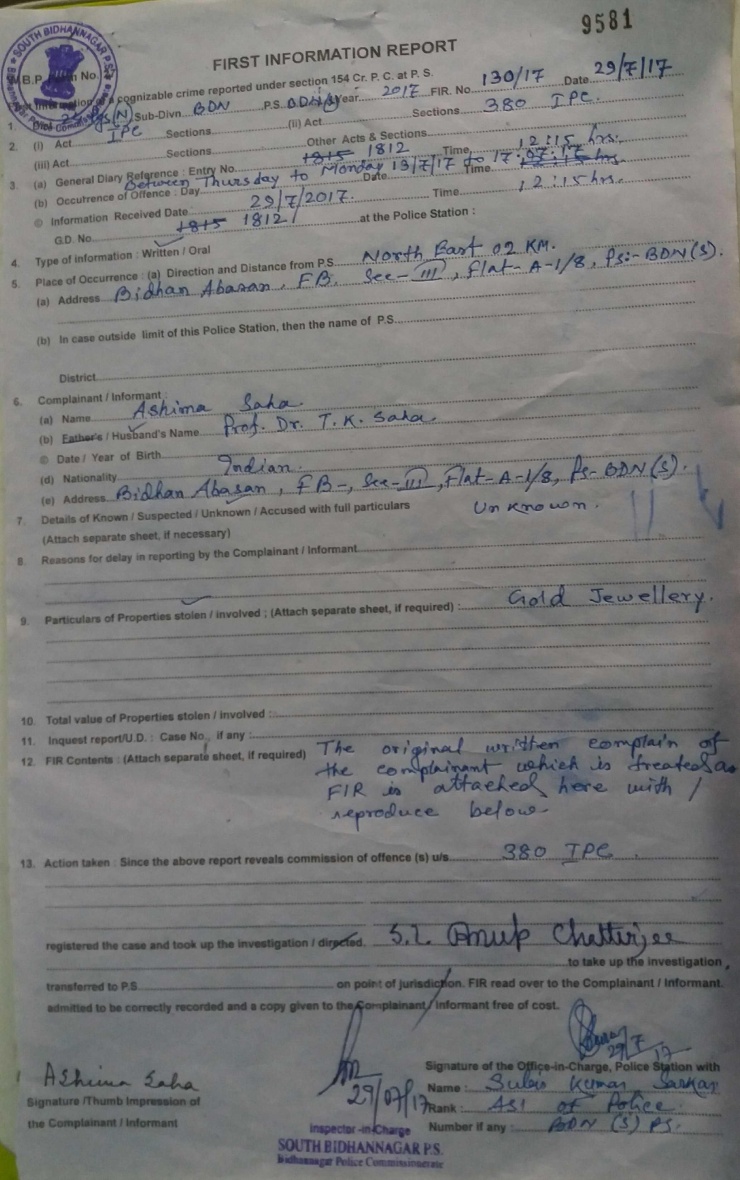 9581
SOUTH BIDHANNAGAR P.S.
FIRST INFORMATION REPORT
cognizable crime reported under section 154 Cr. P. C. at P. S.
1. (N) Sub-Divn. BDN P.S. BDN(S) Year 2017 FIR. No. 130/17 Date 29/7/17
2. (i) Act IPC Sections (ii) Act Sections 380 IPC.
(iii) Act Sections Other Acts & Sections
3. (a) General Diary Reference : Entry No. 1815 1812 Time 12:15 hrs.
(b) Occutrence of Offence : Day Between Thursday to Monday Date 13/7/17 to 17 Time
© Information Received Date 29/7/2017. Time 12:15 hrs.
G.D. No. 1815 1812 at the Police Station :
4. Type of information : Written / Oral
5. Place of Occurrence : (a) Direction and Distance from P.S. North East 02 KM.
(a) Address Bidhan Abasan, FB, Sec-III, Flat-A-1/8, Ps:- BDN(S).
(b) In case outside limit of this Police Station, then the name of P.S.
District
6. Complainant / Informant
(a) Name Ashima Saha
(b) Father's / Husband's Name Prof. Dr. T. K. Saha.
© Date / Year of Birth
(d) Nationality Indian.
(e) Address Bidhan Abasan, FB-, Sec-III, Flat-A-1/8, Ps-BDN(S).
7. Details of Known / Suspected / Unknown / Accused with full particulars Unknown.
(Attach separate sheet, if necessary)
8. Reasons for delay in reporting by the Complainant / Informant
9. Particulars of Properties stolen / involved ; (Attach separate sheet, if required) : Gold Jewellery.
10. Total value of Properties stolen / involved :
11. Inquest report/U.D. : Case No., if any :
12. FIR Contents : (Attach separate sheet, if required) The original written complain of
the complainant which is treated as
FIR is attached here with /
reproduce below.
13. Action taken : Since the above report reveals commission of offence (s) u/s 380 IPC.
registered the case and took up the investigation / directed S.I. Anup Chatterjee
to take up the investigation,
transferred to P.S. on point of jurisdiction. FIR read over to the Complainant / Informant.
admitted to be correctly recorded and a copy given to the Complainant / Informant free of cost.
29/7/17
Signature of the Office-in-Charge, Police Station with
Ashima Saha
Signature /Thumb Impression of
the Complainant / Informant
29/07/17
Inspector-in-Charge
SOUTH BIDHANNAGAR P.S.
Bidhannagar Police Commissionerate
Name : Kumar Sarkar
Rank : ASI of Police
Number if any : BDN (S) PS.